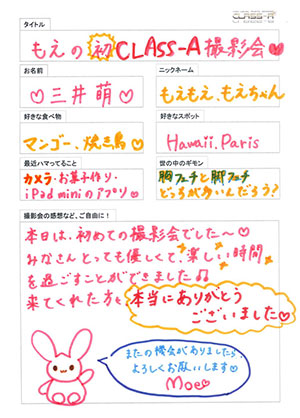 CLASS-A
タイトル
もえの初CLASS-A撮影会♥
お名前
♡三井萌♡
ニックネーム
もえもえ、もえちゃん
好きな食べ物
マンゴー、焼き鳥♡
好きなスポット
Hawaii、Paris
最近ハマってること
カメラ・お菓子作り・
iPad miniのアプリ♡
世の中のギモン
胸フェチと脚フェチ
どっちが多いんだろう?
撮影会の感想など、ご自由に!
本日は、初めての撮影会でした〜♡
みなさんとっても優しくて、楽しい時間
を過ごすことができました♫
来てくれた方々
本当にありがとう
ございました♡
またの機会がありましたら、
よろしくお願いします♡
Moe♡